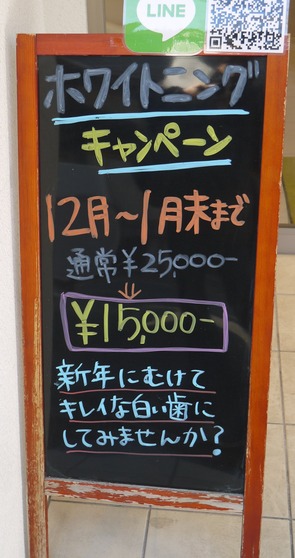 LINE
ホワイトニング
キャンペーン
12月～1月末まで
通常¥25,000-
¥15,000-
新年にむけて
キレイな白い歯に
してみませんか?